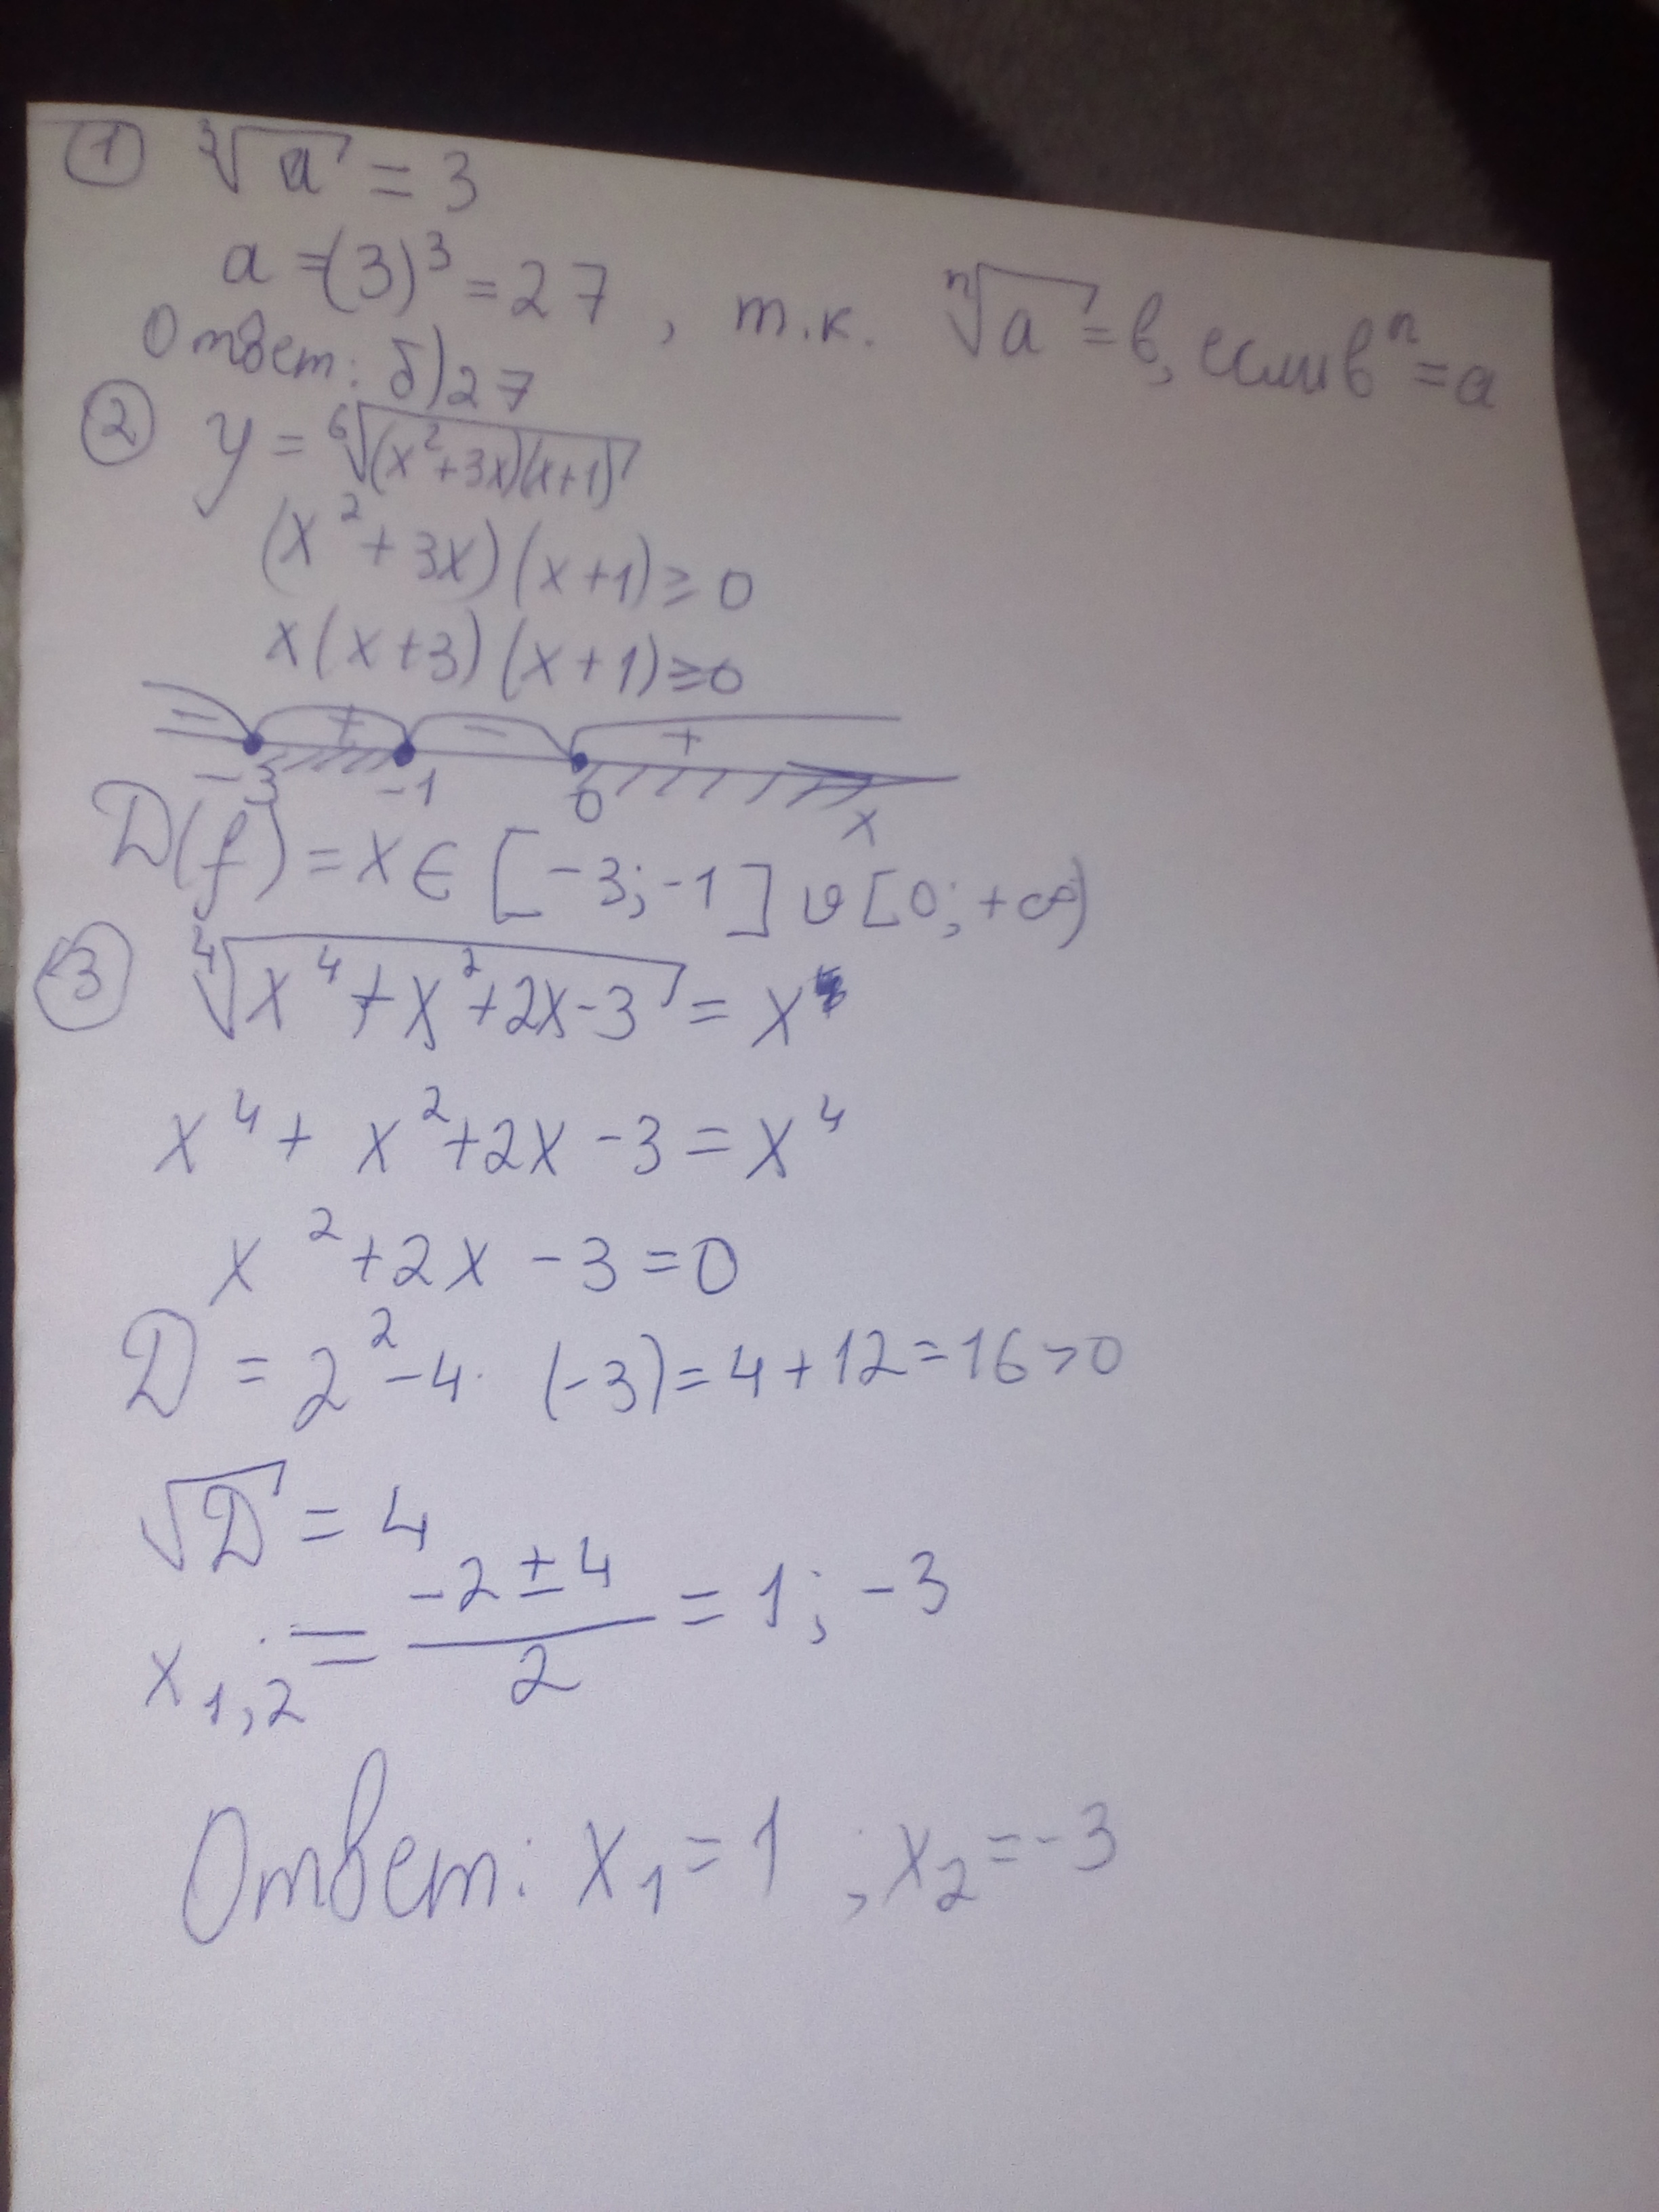 ① ∛a = 3
a = (3)³ = 27, т.к. ⁿ√a = в, если вⁿ = a
Ответ: б) 27
② y = ⁶√((x²+3x)(x+1))
(x²+3x)(x+1) ≥ 0
x(x+3)(x+1) ≥ 0
− + − +
-3 -1 0 x
D(f) = x ∈ [-3; -1] ∪ [0; +∞)
③ ∜(x⁴+x²+2x-3) = x
x⁴ + x² + 2x - 3 = x⁴
x² + 2x - 3 = 0
D = 2² - 4 · (-3) = 4 + 12 = 16 > 0
√D = 4
x₁,₂ = (-2 ± 4)/2 = 1; -3
Ответ: x₁ = 1 ; x₂ = -3